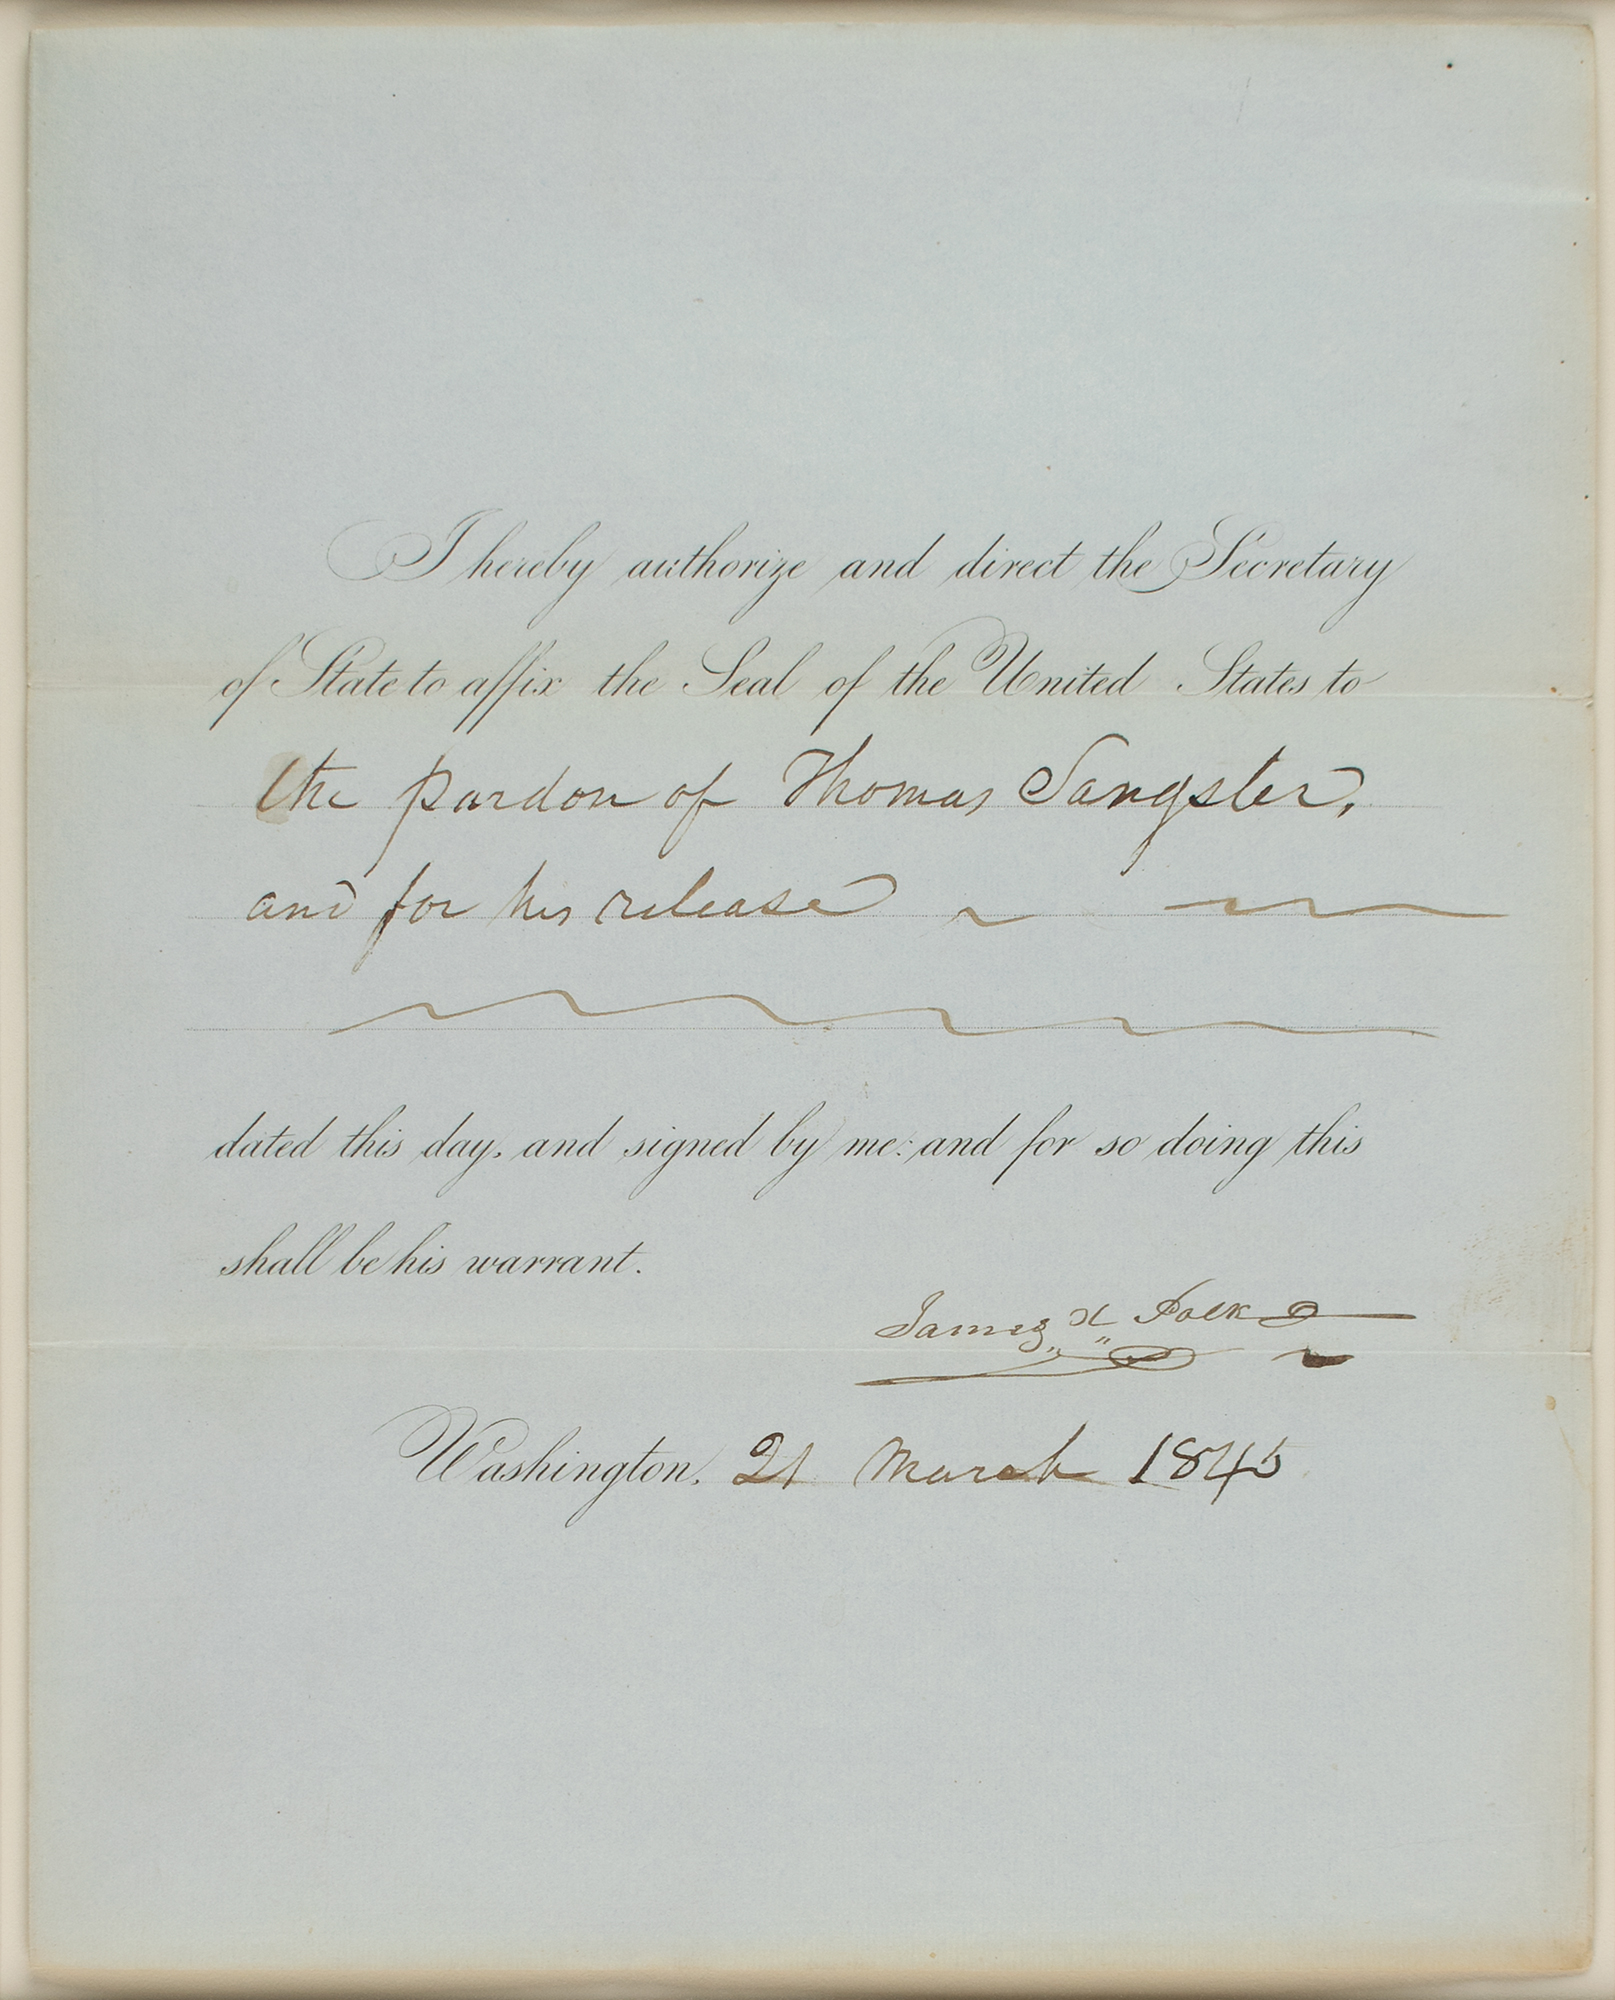 I hereby authorize and direct the Secretary
of State to affix the Seal of the United States to
the pardon of Thomas Sangster,
and for his release
dated this day, and signed by me: and for so doing this
shall be his warrant.
James K Polk
Washington, 21 March 1845